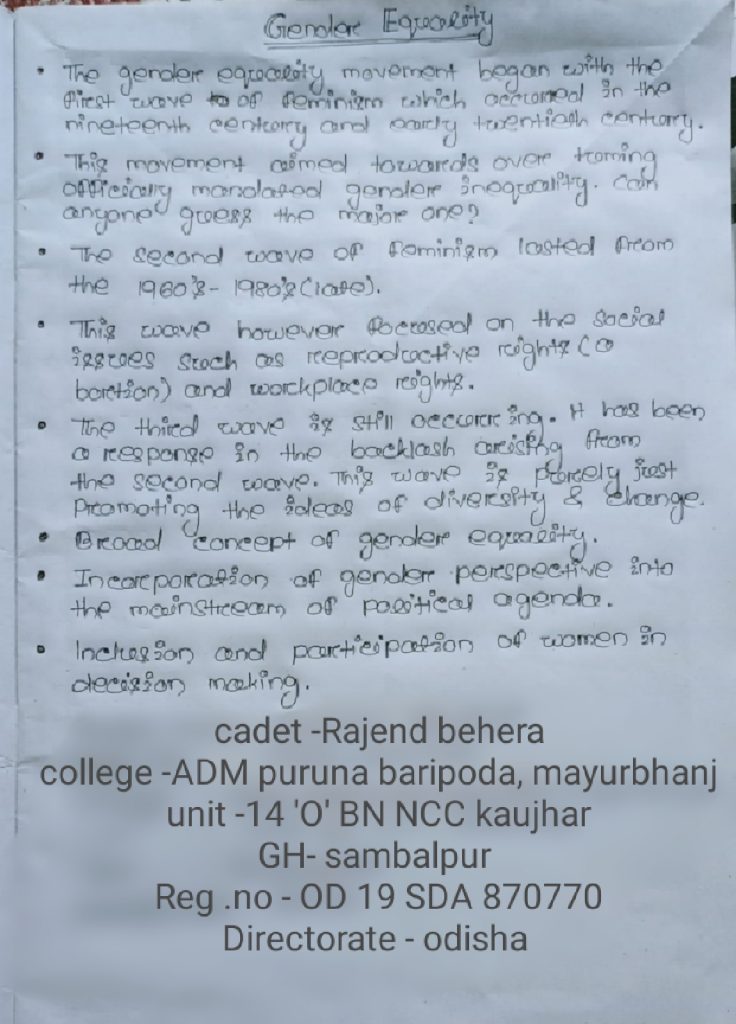 Gender Equality
• The gender equality movement began with the
first wave to of feminism which occurred in the
nineteenth century and early twentieth century.
• This movement aimed towards over turning
officially mandated gender inequality. Can
anyone guess the major one?
• The second wave of feminism lasted from
the 1960's - 1980's (late).
• This wave however focused on the social
issues such as reproductive rights (a
bortion) and workplace rights.
• The third wave is still occurring. It has been
a response in the backlash arising from
the second wave. This wave is just
Promoting the ideas of diversity & change.
• Broad concept of gender equality.
• Incorporation of gender perspective into
the mainstream of political agenda.
• Inclusion and participation of women in
decision making.
cadet -Rajend behera
college -ADM puruna baripoda, mayurbhanj
unit -14 'O' BN NCC kaujhar
GH- sambalpur
Reg .no - OD 19 SDA 870770
Directorate - odisha